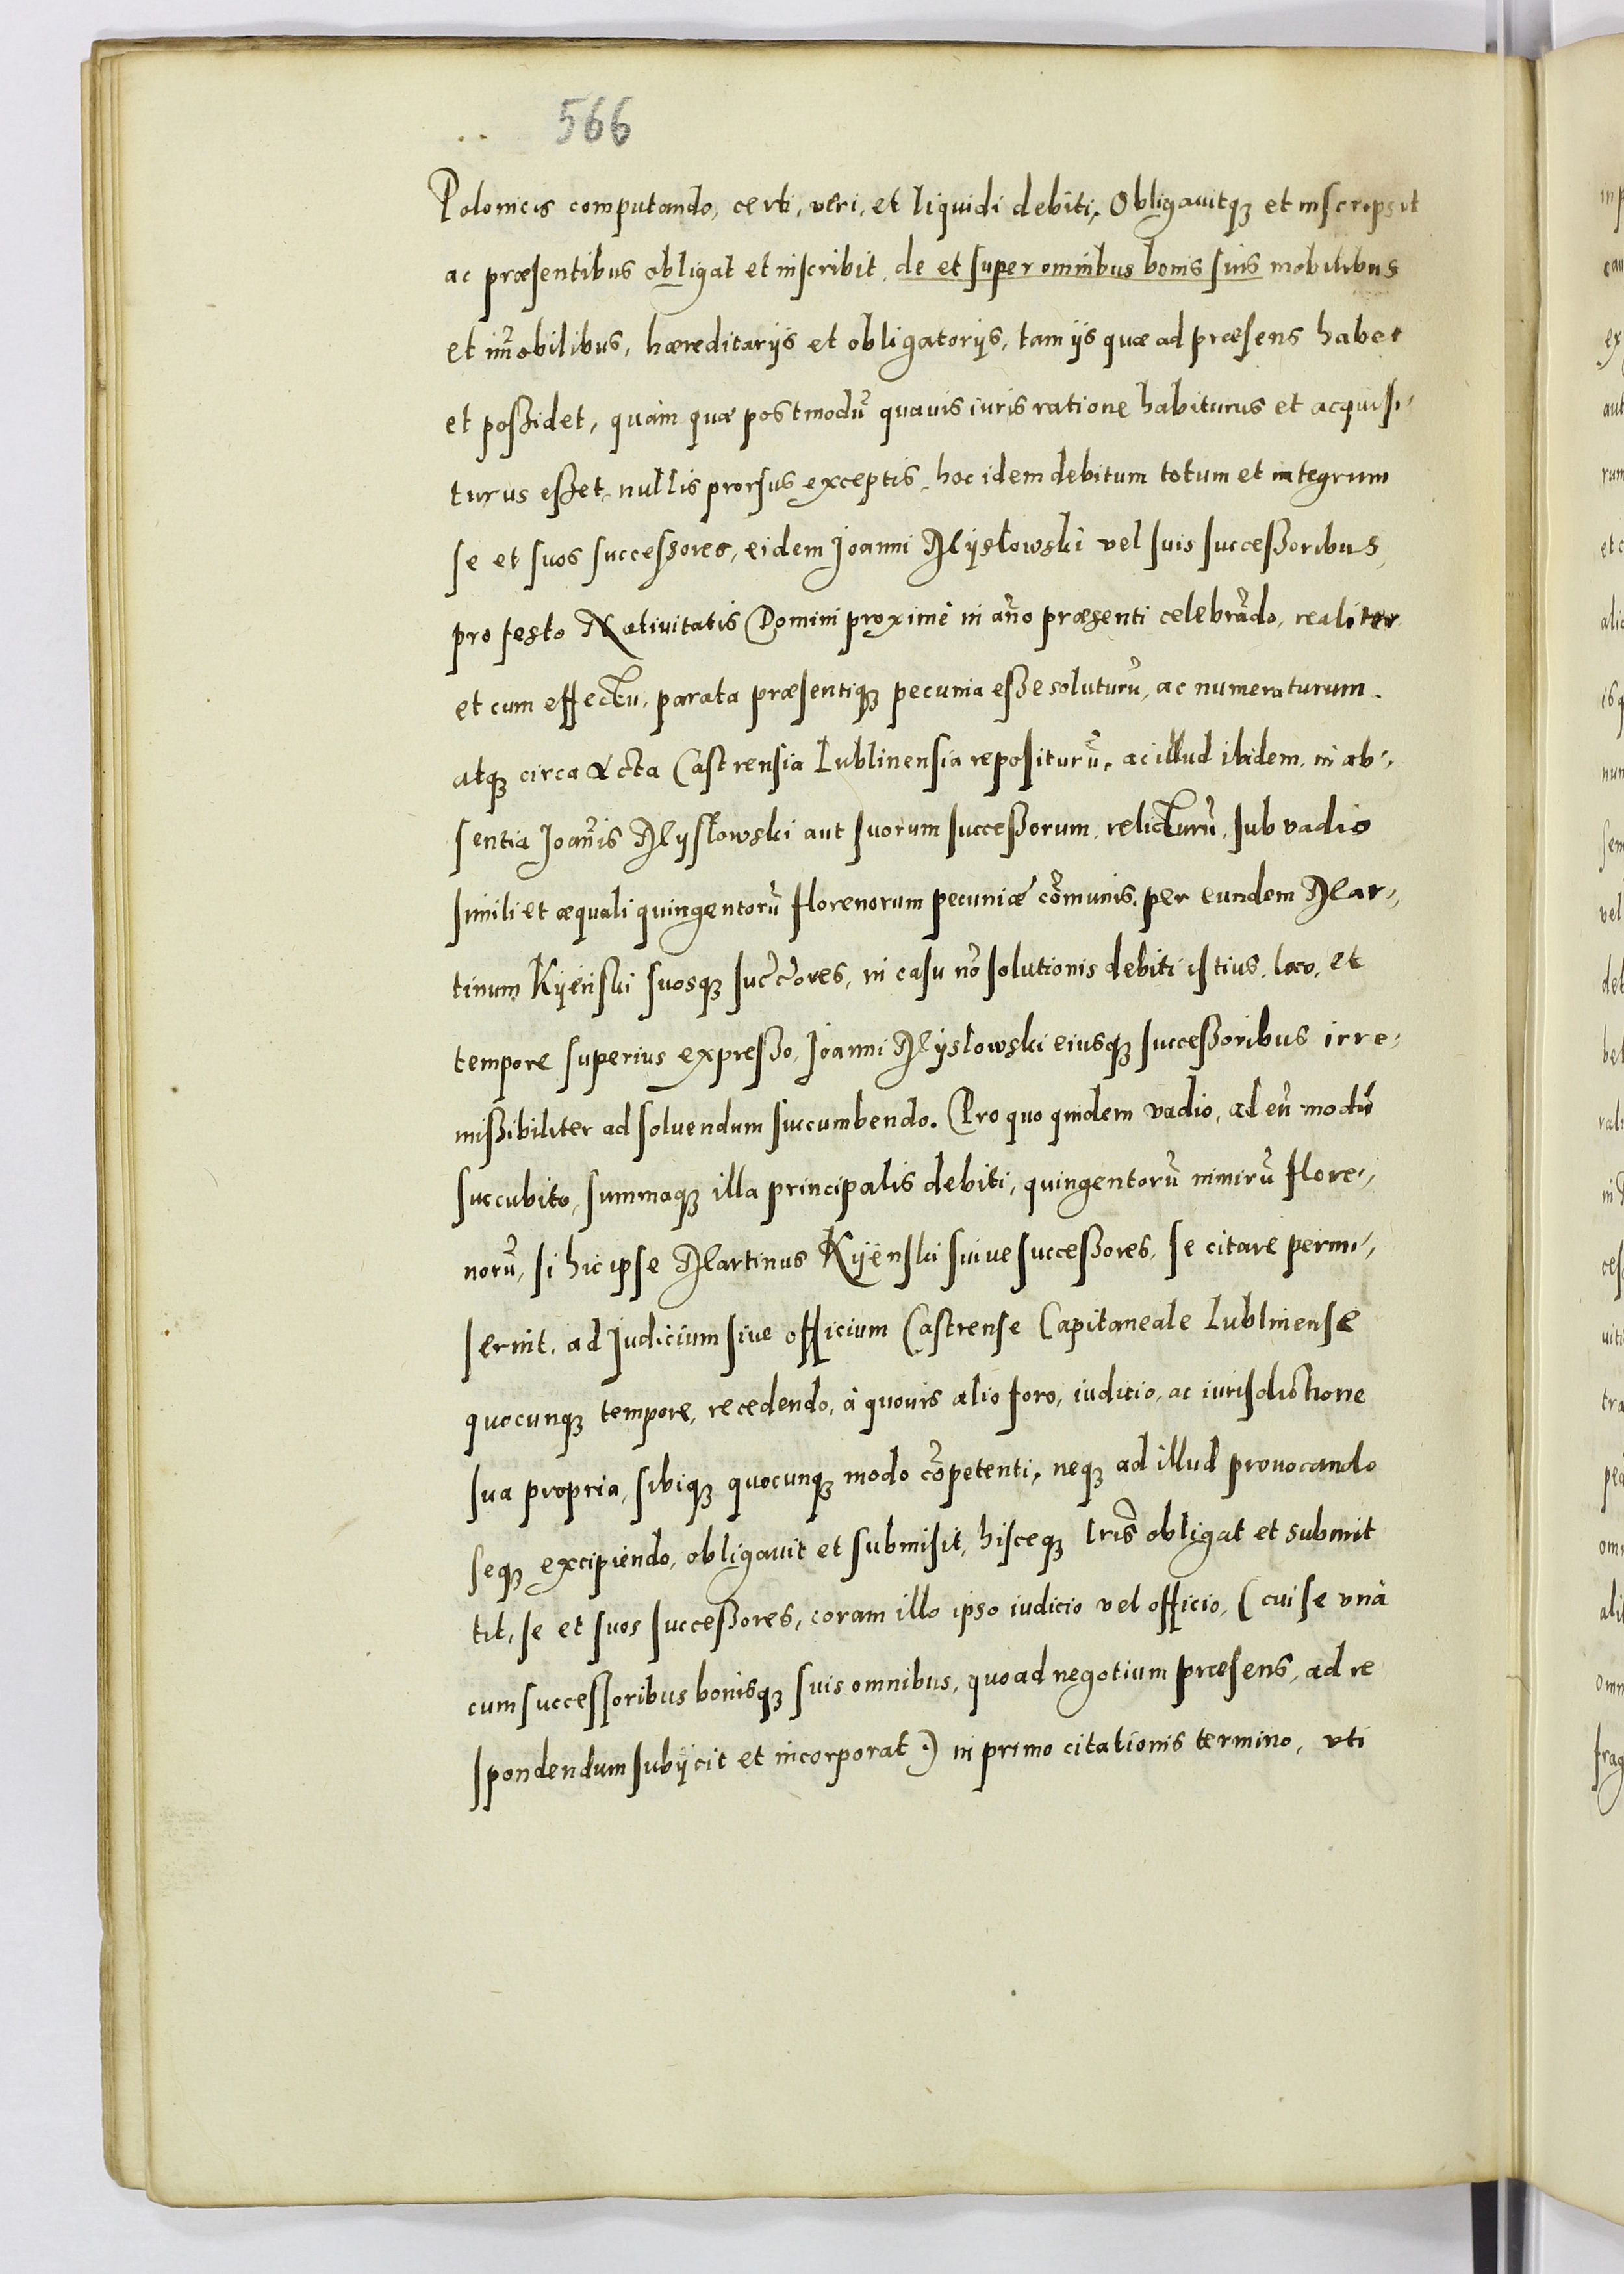 566
Polonicis computando, certi, veri, et liquidi debiti. Obligavitqꝫ et inscripsit
ac præsentibus obligat et inscribit, de et super omnibus bonis suis mobilibus
et im̄obilibus, hæreditarijs et obligatorijs, tam ijs quæ ad præsens habet
et poßidet, quàm quæ postmodū quavis iuris ratione habiturus et acquisi-
turus eßet, nullis prorsus exceptis, hoc idem debitum totum et integrum
se et suos succeßores, eidem Joanni Mÿstowski vel suis succeßoribus,
pro festo Nativitatis Domini proximè in año præsenti celebrādo, realiter
et cum effectu, parata præsentiqꝫ pecunia eße soluturū, ac numeraturum.
atqꝫ circa Acta Castrensia Lublinensia repositurū, ac illud ibidem, in ab-
sentia Joañis Mÿstowski aut suorum succeßorum, relicturū, sub vadio
simili et æquali quingentorū florenorum pecuniæ cōmunis, per eundem Mar-
tinum Kÿenski suosqꝫ succ̄ores, in casu nō solutionis debiti istius, loco, et
tempore superius expreßo, Joanni Mÿstowski eiusqꝫ succeßoribus irre-
mißibiliter ad soluendum succumbendo. Pro quo quidem vadio, ad eū modū
succubito, summaqꝫ illa principalis debiti, quingentorū nimirū flore-
norū, si hic ipse Martinus Kÿenski suive succeßores, se citare permi-
serint, ad Judicium sive officium Castrense Capitaneale Lublinense
quocunqꝫ tempore, recedendo, à quovis alio foro, iudicio, ac iurisdictione
sua propria, sibiqꝫ quocunqꝫ modo cōpetenti, neqꝫ ad illud provocando
seqꝫ excipiendo, obligavit et submisit, hisceqꝫ lr̄is obligat et submit
tit, se et suos succeßores, coram illo ipso iudicio vel officio, (cui se vnà
cum successoribus bonisqꝫ suis omnibus, quo ad negotium præsens, ad re
spondendum subijcit et incorporat) in primo citationis termino, vti